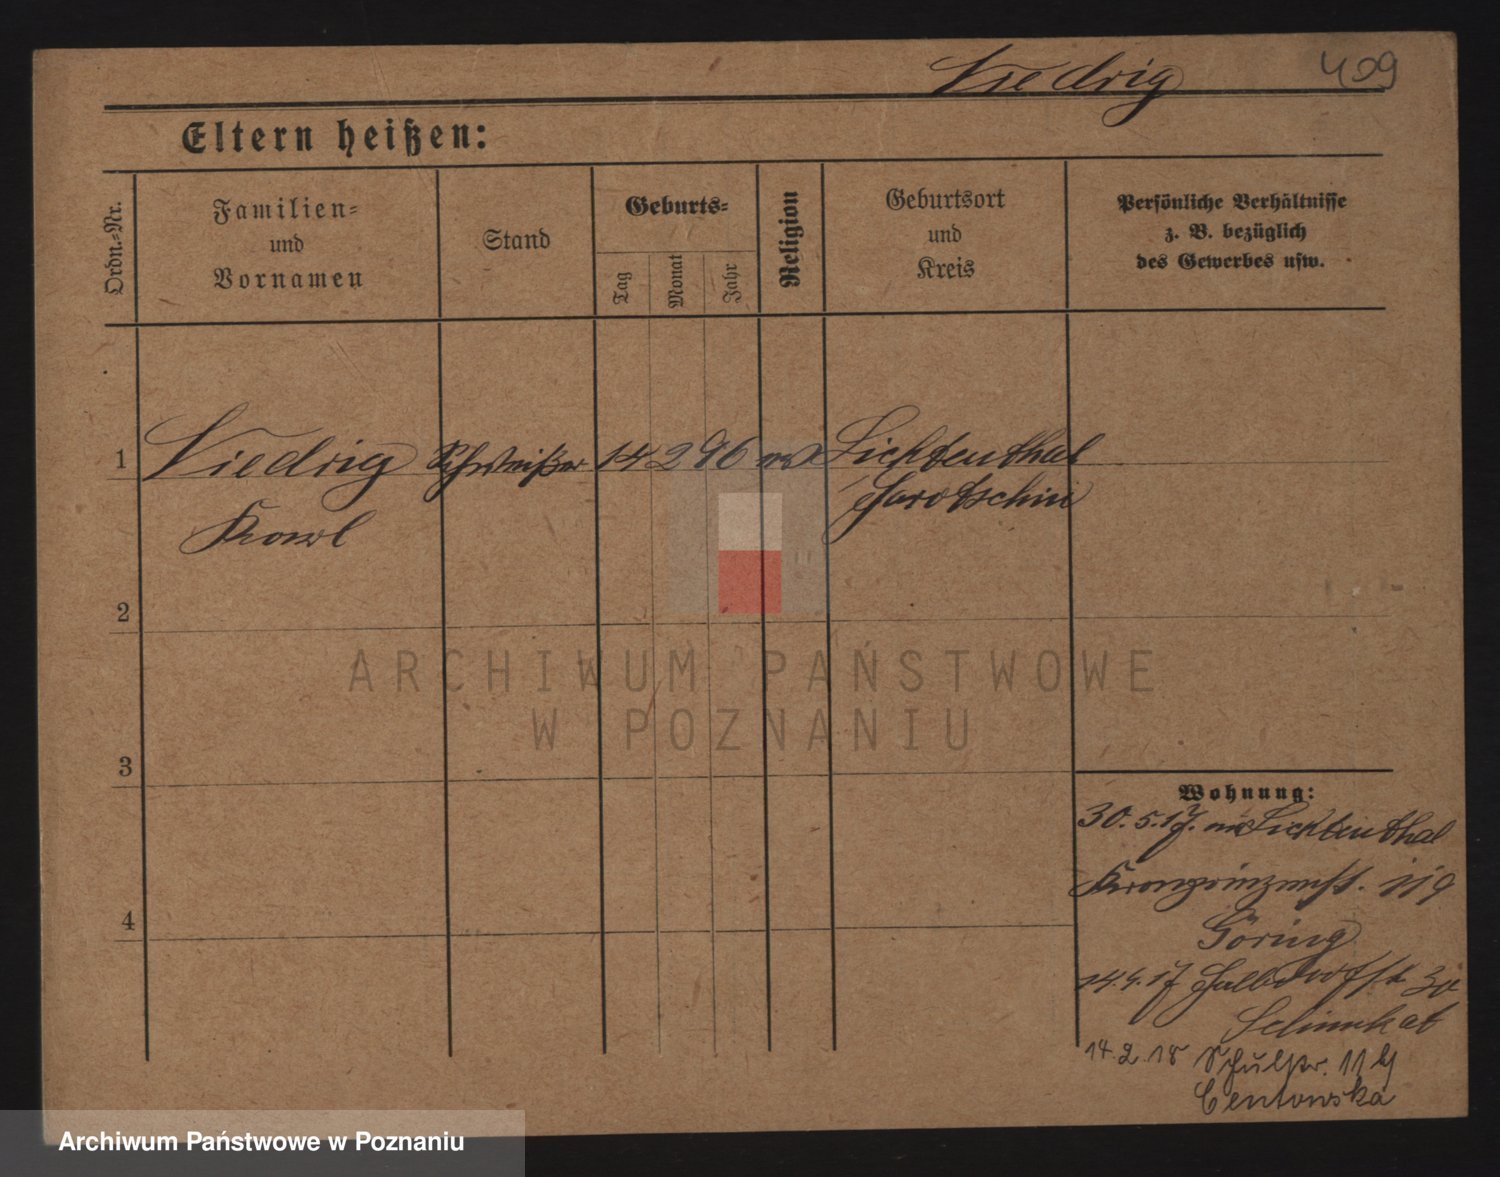 Viedrig 409
Eltern heißen:
Ordn.=Nr.
Familien=
und
Vornamen
Stand
Geburts=
Tag
Monat
Jahr
Religion
Geburtsort
und
Kreis
Persönliche Verhältnisse
z. B. bezüglich
des Gewerbes usw.
1 Viedrig Schweißer 14 2 96 ev Lichtenthal
Karl Jarotschin
2
3
4
Wohnung:
30. 5. 17. Lichtenthal
Kronprinzenst. 119
Göring
14. 17 Halbdorfst
14. 2. 18 Schulstr. 11
Centowska
ARCHIWUM PAŃSTWOWE
W POZNANIU
Archiwum Państwowe w Poznaniu